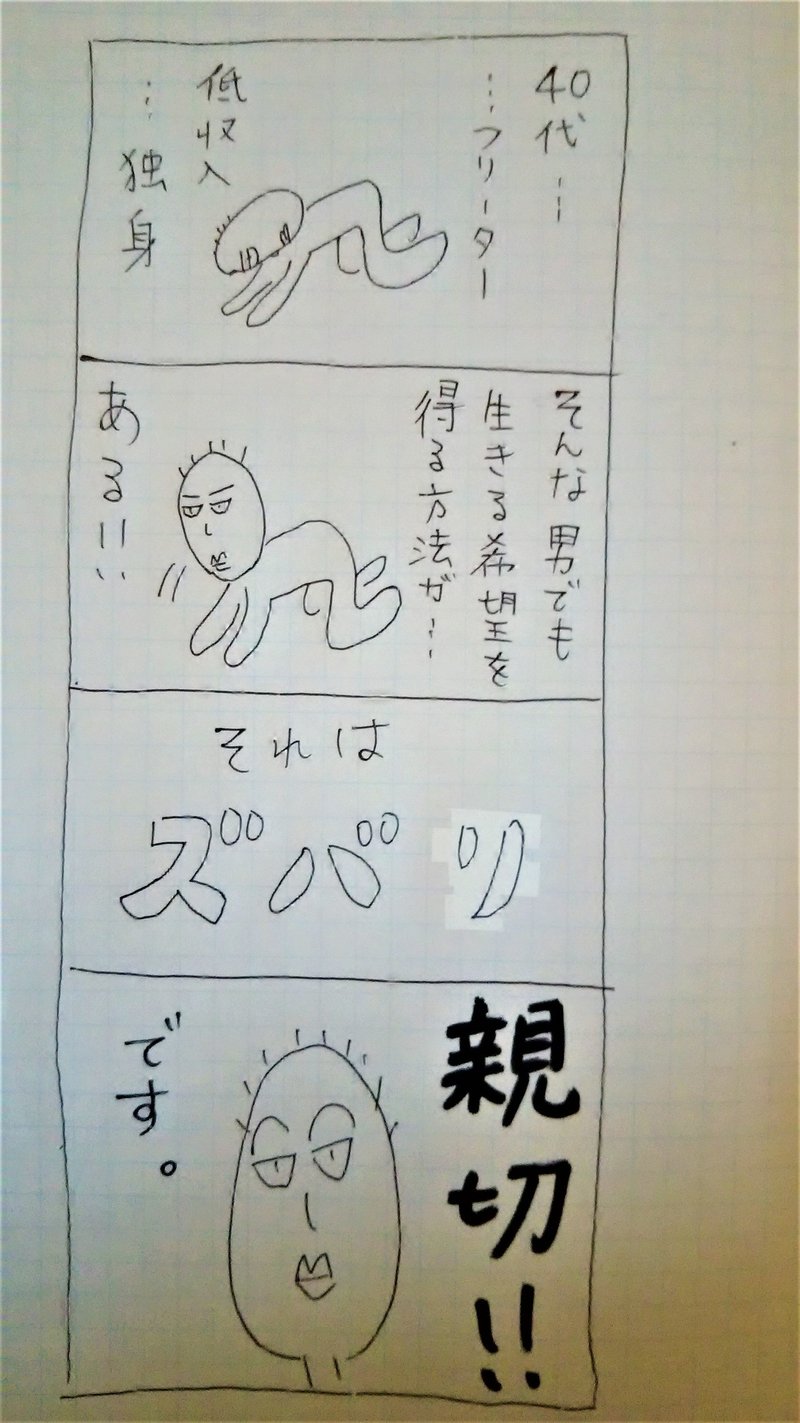 40代……
…フリーター
低収入
…独身
そんな男でも
生きる希望を
得る方法が…
ある!!
それは
ズバリ
親切!!
です。